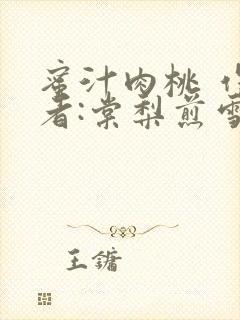 蜜汁肉桃
者:棠梨煎雪
王鏞